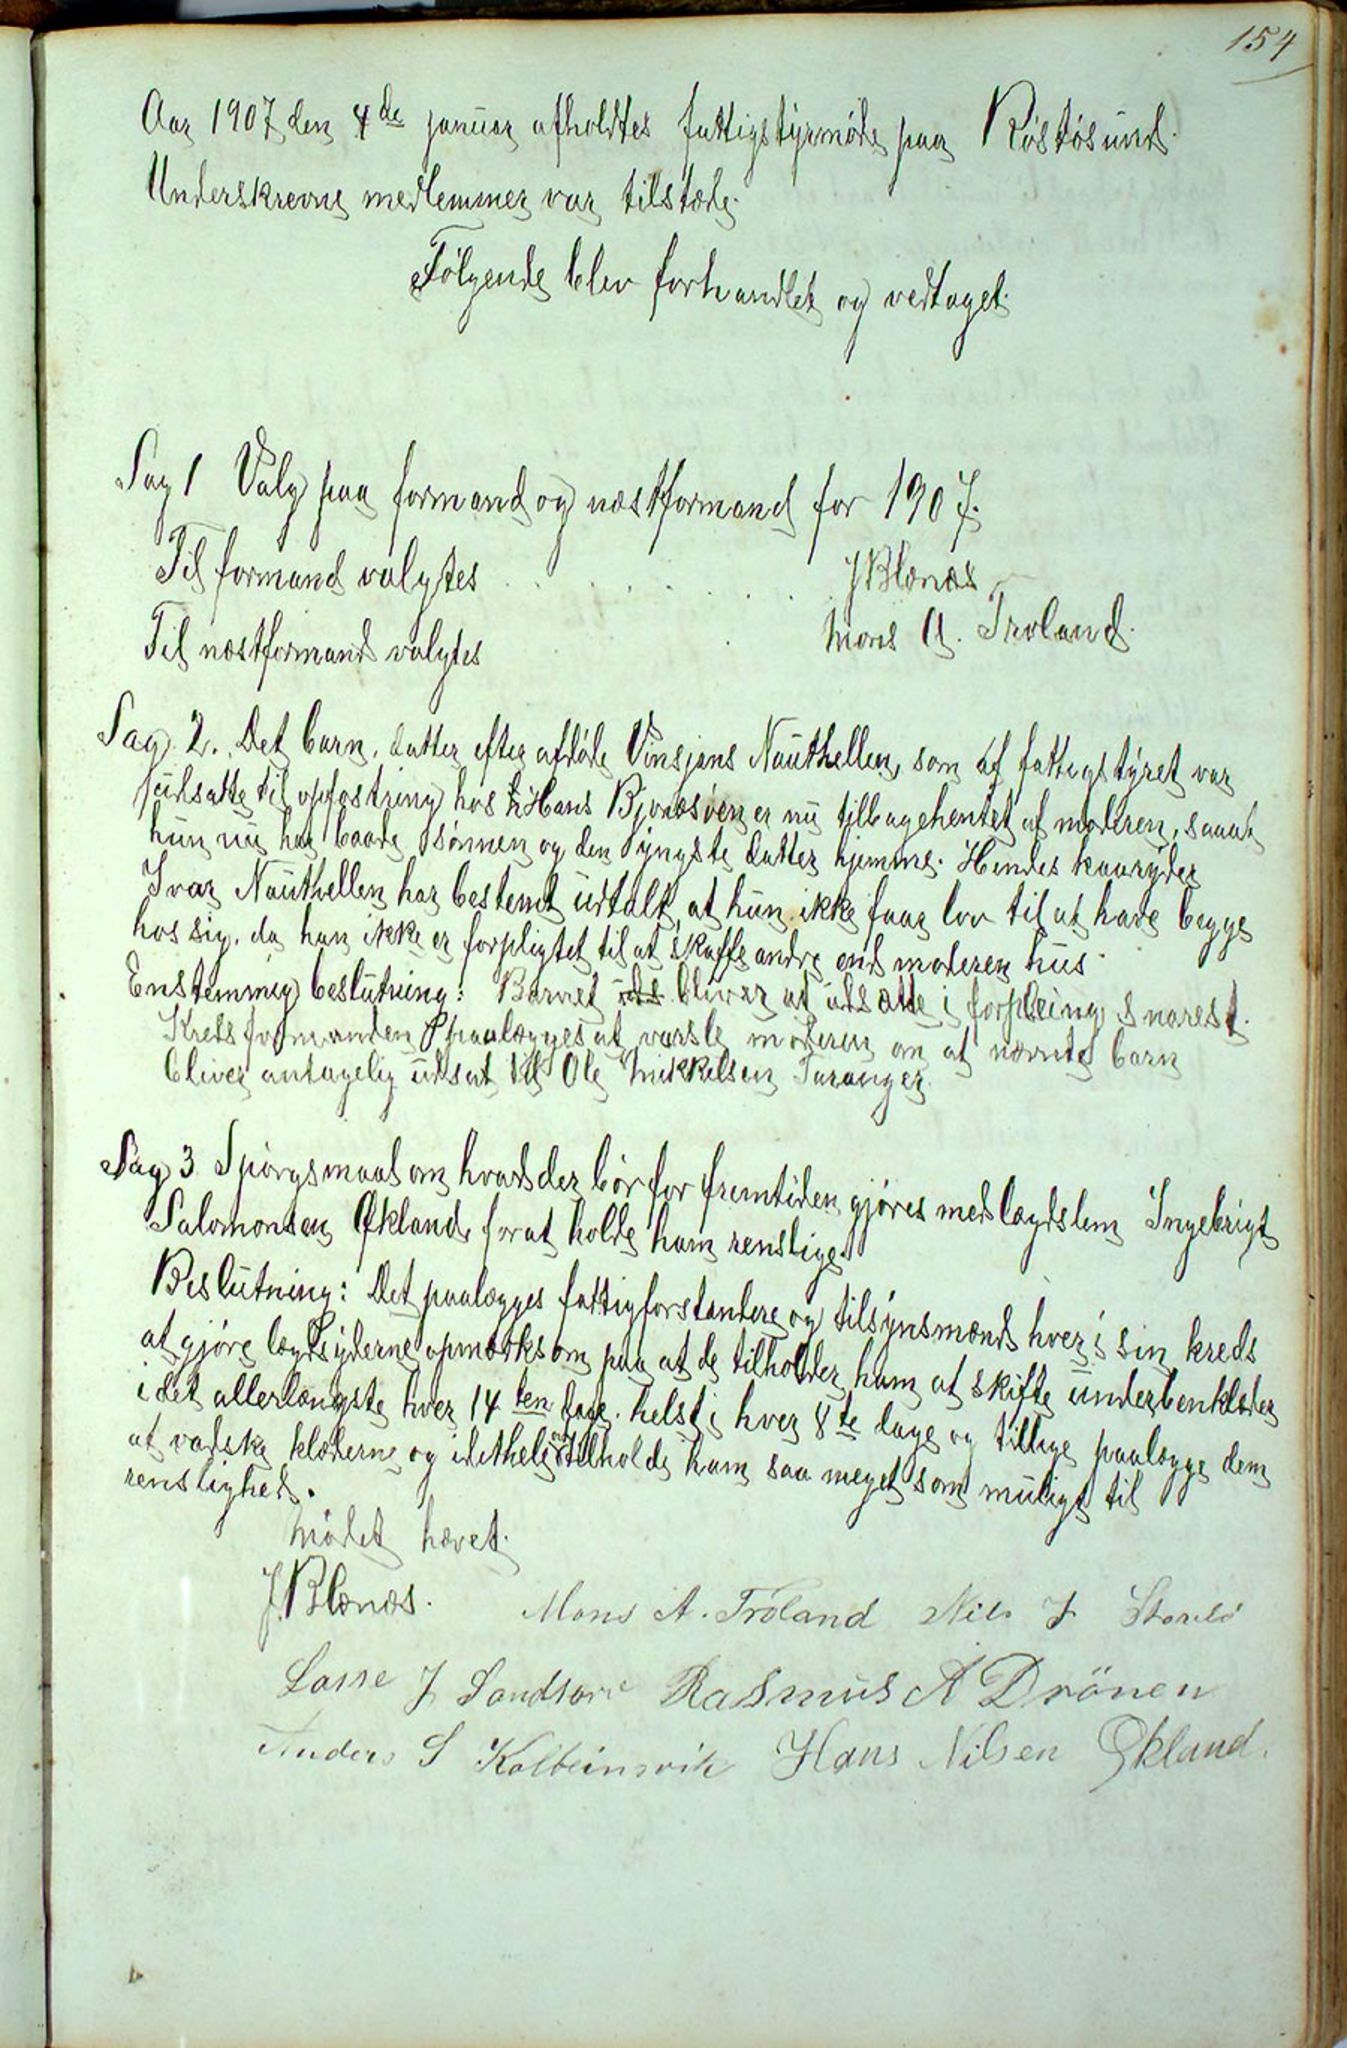 154
Aar 1907 den 4de januar afholdtes fattigstyrmøde paa Röstösund.
Underskrevne medlemmer var tilstæde.
Følgende blev forhandlet og vedtaget.
Sag 1 Valg paa formand og næstformand for 1907.
Til formand valgtes . . . . . . J Blænæs
Til næstformand valgtes . . Mons A. Troland.
Sag 2. Det barn, datter efter afdøde Vinsjans Nauthellen, som af fattigstyret var
udsatte til opfostring hos Hans Bjonæsøen er nu tilbagehentet af moderen, saaat
hun nu har baade sønnen og den yngste datter hjemme. Hendes kaaryder
Ivar Nauthellen har bestemt udtalt, at hun ikke faar lov til at have begge
hos sig, da han ikke er forpligtet til at skaffe andre end moderen hus.
Enstemmig beslutning: Barnet uds bliver at udsætte i forpleining snarest.
Kredsformanden paalægges at varsle moderen om at nævnte barn
bliver antagelig udsat til Ole Mikkelsen Taranger.
Sag 3 Spørgsmaal om hvad der bør for fremtiden gjøres med lægdslem Ingebrigt
Salomonsen Økland for at holde ham renslige.
Beslutning: Det paalægges fattigforstandere og tilsynsmænd hver i sin kreds
at gjøre lægdsyderne opmærksom paa at de tilholder ham at skifte underbenklæder
i det allerlængste hver 14ten dage helst i hver 8te dage og tillige paalægge dem
at vadske klæderne og idethele at tilholde ham saa meget som muligt til
renslighed.
Mødet hævet.
J Blænæs. Mons A. Troland Nils J Storebö
Lasse J Sandtorv Rasmus A Drönen
Anders S Kolbeinsvik Hans Nilsen Økland.